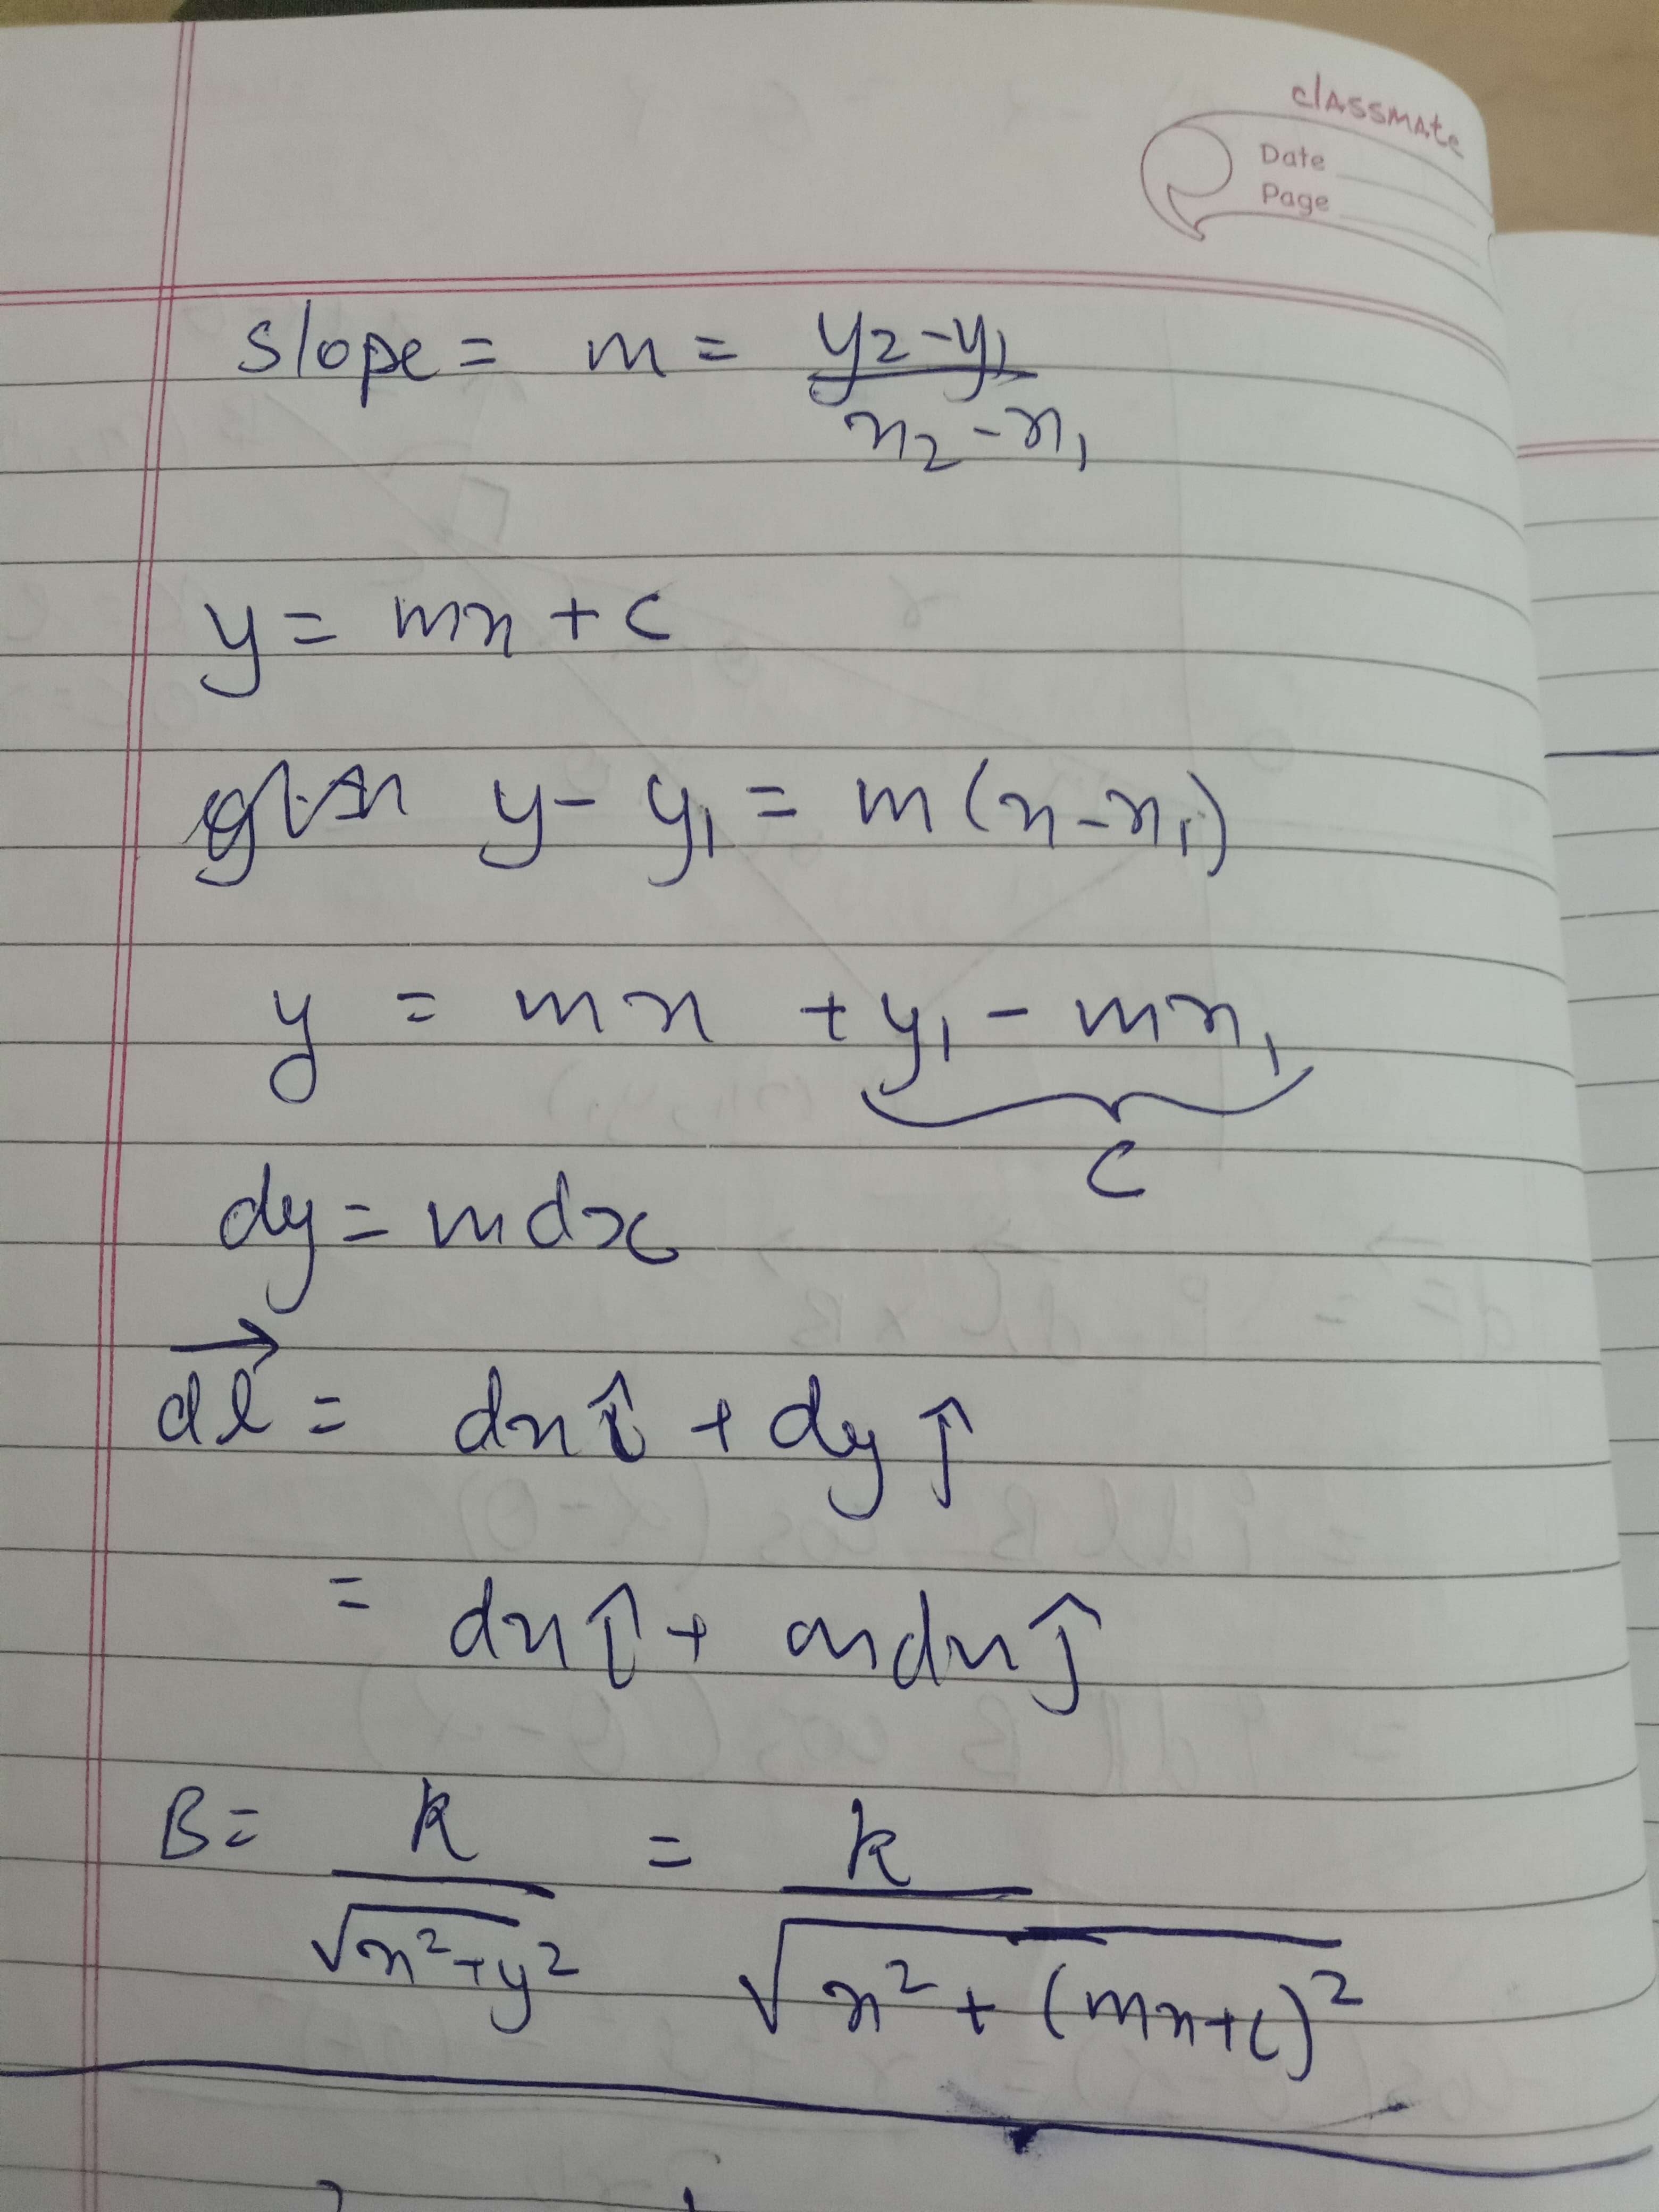 classmate
Date
Page
slope = m = (y₂-y₁)/(x₂-x₁)
y = mx + c
y - y₁ = m(x-x₁)
y = mx + y₁ - mx₁
c
dy = mdx
dl⃗ = dx î + dy ĵ
= dx î + mdx ĵ
B = k/√(x²+y²) = k/√(x² + (mx+c)²)